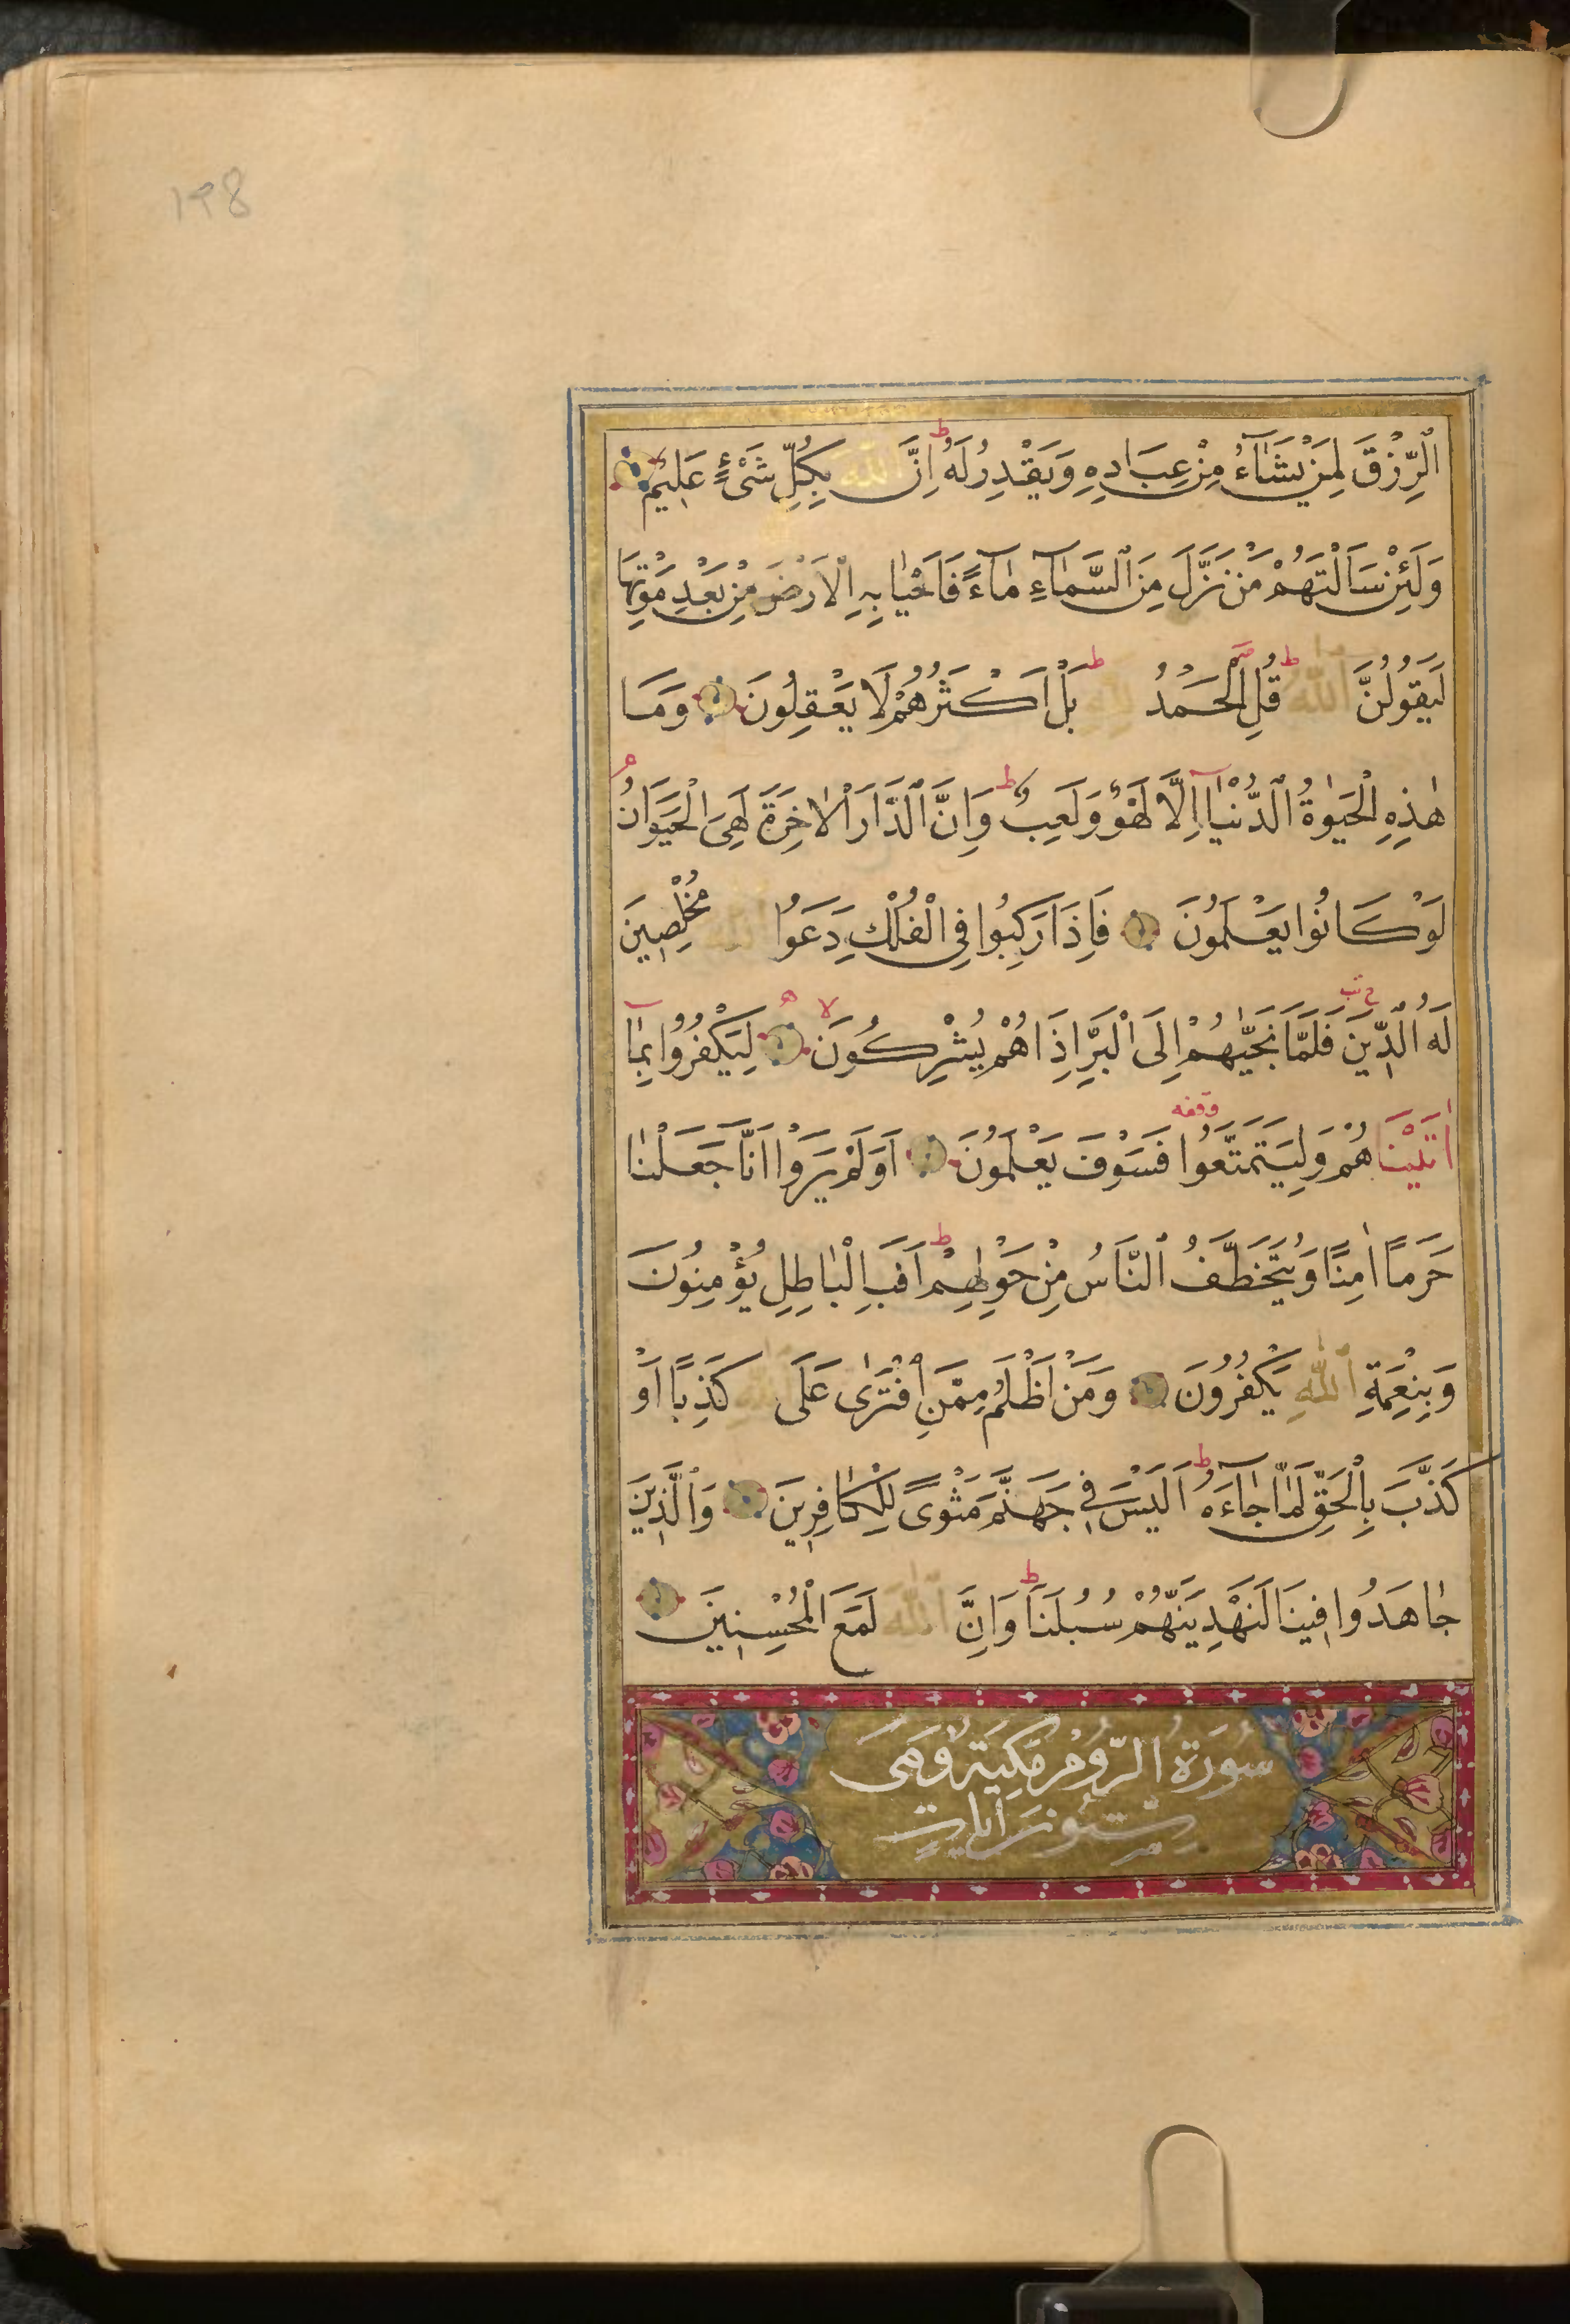 ۱۹8
الرِّزْقَ لِمَنْ يَشَآءُ مِنْ عِبَادِهِ وَيَقْدِرُ لَهُ ط اِنَّ اللّٰهَ بِكُلِّ شَىْءٍ عَلِيمٌ
وَلَئِنْ سَاَلْتَهُمْ مَنْ نَزَّلَ مِنَ السَّمَآءِ مَآءً فَاَحْيَا بِهِ الْاَرْضَ مِنْ بَعْدِ مَوْتِهَا
لَيَقُولُنَّ اللّٰهُ ط قُلِ الْحَمْدُ لِلّٰهِ ط بَلْ اَكْثَرُهُمْ لَا يَعْقِلُونَ وَمَا
هٰذِهِ الْحَيٰوةُ الدُّنْيَآ اِلَّا لَهْوٌ وَلَعِبٌ ط وَاِنَّ الدَّارَ الْاٰخِرَةَ لَهِىَ الْحَيَوَانُ م
لَوْ كَانُوا يَعْلَمُونَ فَاِذَا رَكِبُوا فِى الْفُلْكِ دَعَوُا اللّٰهَ مُخْلِصِينَ
لَهُ الدِّينَ فَلَمَّا نَجّٰيهُمْ اِلَى الْبَرِّ اِذَا هُمْ يُشْرِكُونَ لا لِيَكْفُرُوا بِمَآ
اٰتَيْنَاهُمْ وَلِيَتَمَتَّعُوا وقفه فَسَوْفَ يَعْلَمُونَ اَوَلَمْ يَرَوْا اَنَّا جَعَلْنَا
حَرَمًا اٰمِنًا وَيُتَخَطَّفُ النَّاسُ مِنْ حَوْلِهِمْ ط اَفَبِالْبَاطِلِ يُؤْمِنُونَ
وَبِنِعْمَةِ اللّٰهِ يَكْفُرُونَ وَمَنْ اَظْلَمُ مِمَّنِ افْتَرٰى عَلَى اللّٰهِ كَذِبًا اَوْ
كَذَّبَ بِالْحَقِّ لَمَّا جَآءَهُ ط اَلَيْسَ فِى جَهَنَّمَ مَثْوًى لِلْكَافِرِينَ وَالَّذِينَ
جَاهَدُوا فِينَا لَنَهْدِيَنَّهُمْ سُبُلَنَا ط وَاِنَّ اللّٰهَ لَمَعَ الْمُحْسِنِينَ
سُورَةُ الرُّومِ مَكِّيَةٌ وَهِىَ
سِتُّونَ اٰيَاتٍ